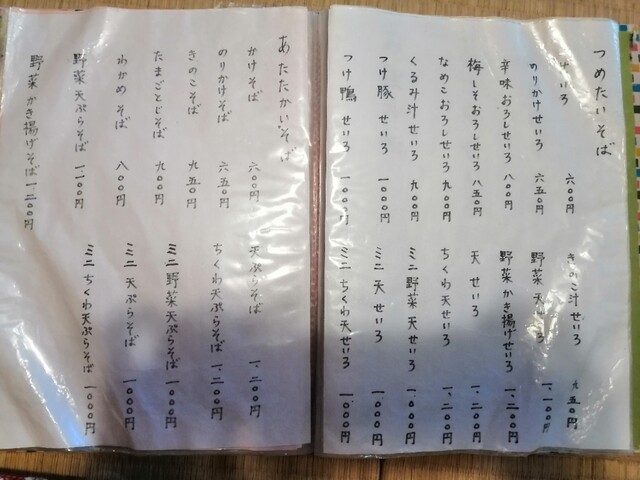 つめたいそば
せいろ 六〇〇円
のりかけせいろ 六五〇円
辛味おろしせいろ 八〇〇円
梅しそおろしせいろ 八五〇円
なめこおろしせいろ 九〇〇円
くるみ汁せいろ 九〇〇円
つけ豚せいろ 一〇〇〇円
つけ鴨せいろ 一〇〇〇円
きのこ汁せいろ 九五〇円
野菜天せいろ 一、一〇〇円
野菜かき揚げせいろ 一、二〇〇円
天せいろ 一、二〇〇円
ちくわ天せいろ 一、二〇〇円
ミニ野菜天せいろ 一〇〇〇円
ミニ天せいろ 一〇〇〇円
ミニちくわ天せいろ 一、〇〇〇円
あたたかいそば
かけそば 六〇〇円
のりかけそば 六五〇円
きのこそば 九五〇円
たまごとじそば 九〇〇円
わかめそば 八〇〇円
野菜天ぷらそば 一、一〇〇円
野菜かき揚げそば 一、二〇〇円
天ぷらそば 一、二〇〇円
ちくわ天ぷらそば 一、二〇〇円
ミニ野菜天ぷらそば 一〇〇〇円
ミニ天ぷらそば 一〇〇〇円
ミニちくわ天ぷらそば 一〇〇〇円